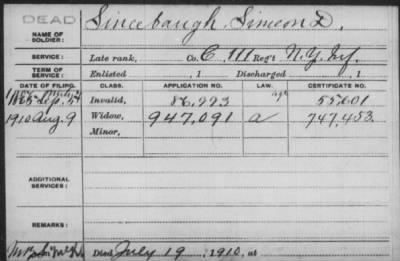 DEAD
Sincebaugh, Simeon D.
NAME OF SOLDIER:
SERVICE: Late rank, Co. C, 111 Reg't N.Y. Inf.
TERM OF SERVICE: Enlisted , 1 Discharged , 1
DATE OF FILING. CLASS. APPLICATION NO. LAW. CERTIFICATE NO.
1865 Sep. Invalid, 86,223 55601
1910 Aug. 9 Widow, 947,091 a 747,453.
Minor,
ADDITIONAL SERVICES:
REMARKS:
Died July 19, 1910, at